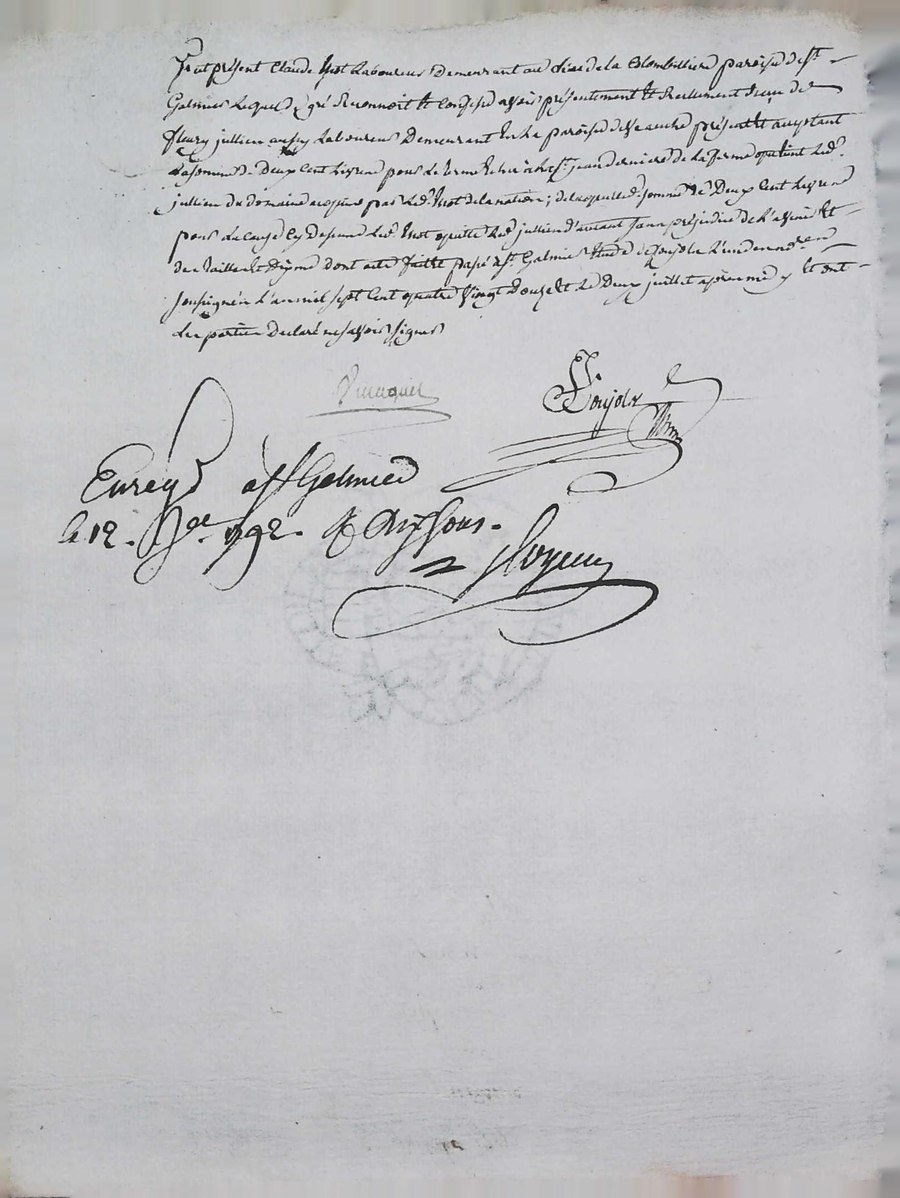 fut présent Claude Usot Laboureur Demeurant au lieu de la Colombillière paroisse de St
Galmier Lequel de gré Reconnoit Et Confesse avoir présentement Et Reellement Reçu de
fleury jullien aussy Laboureur Demeurant En La paroisse de présent Et acceptant
La somme de Deux Cent Livres pour le terme Echu à la St jean derniere de la ferme que tient Led.
jullien du domaine acquis par Led. Usot de la nation; de laquelle d. somme de Deux Cent Livres
pour La cause Cy Dessus Led. Usot quitte Led. jullien d'autant sans préjudice de L'avenir Et
des Tailles Et Dont acte fait Et passé à St. Galmier Etude de Poujolx L'un des nores
soussignés L'an mil sept Cent quatre Vingt Douze Et le Deux juillet après midy Et ont
Les parties Declaré ne savoir signer
Poujolx
Enregé à St Galmier
le 12. 1792. R Dix Sous.